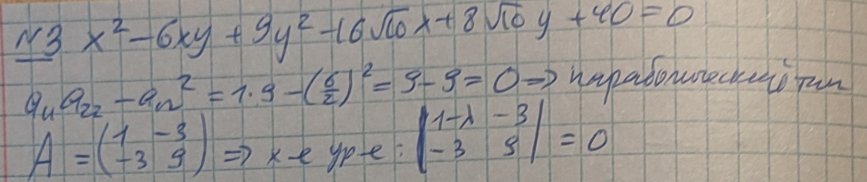 №3 x² - 6xy + 9y² - 16√10x + 8√10y + 40 = 0
a₁₁a₂₂ - a₁₂² = 1·9 - (6/2)² = 9 - 9 = 0 => параболический тип
A = (1 -3 -3 9) => х-е ур-е: |1-λ -3 -3 9| = 0